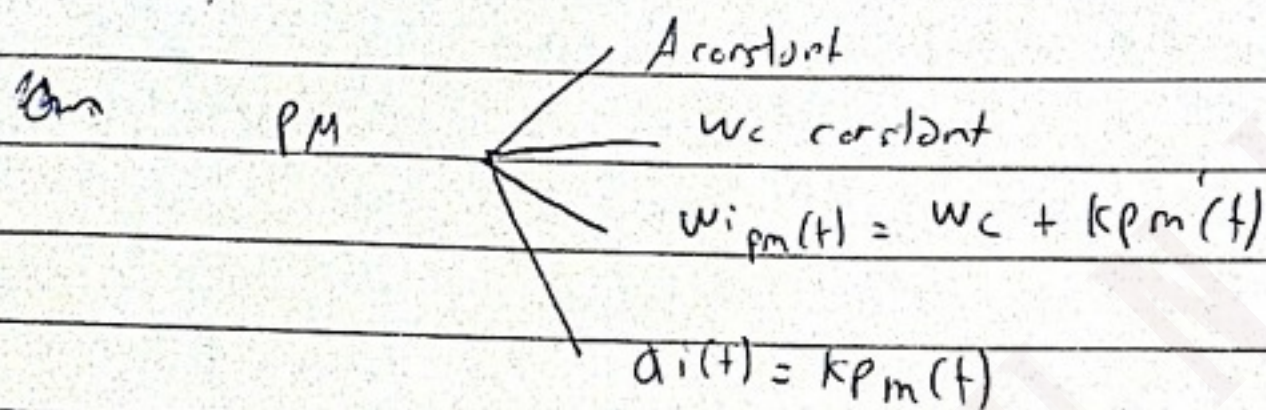 A constant
PM
wc constant
wi pm(t) = wc + kp m'(t)
αi(t) = kp m(t)